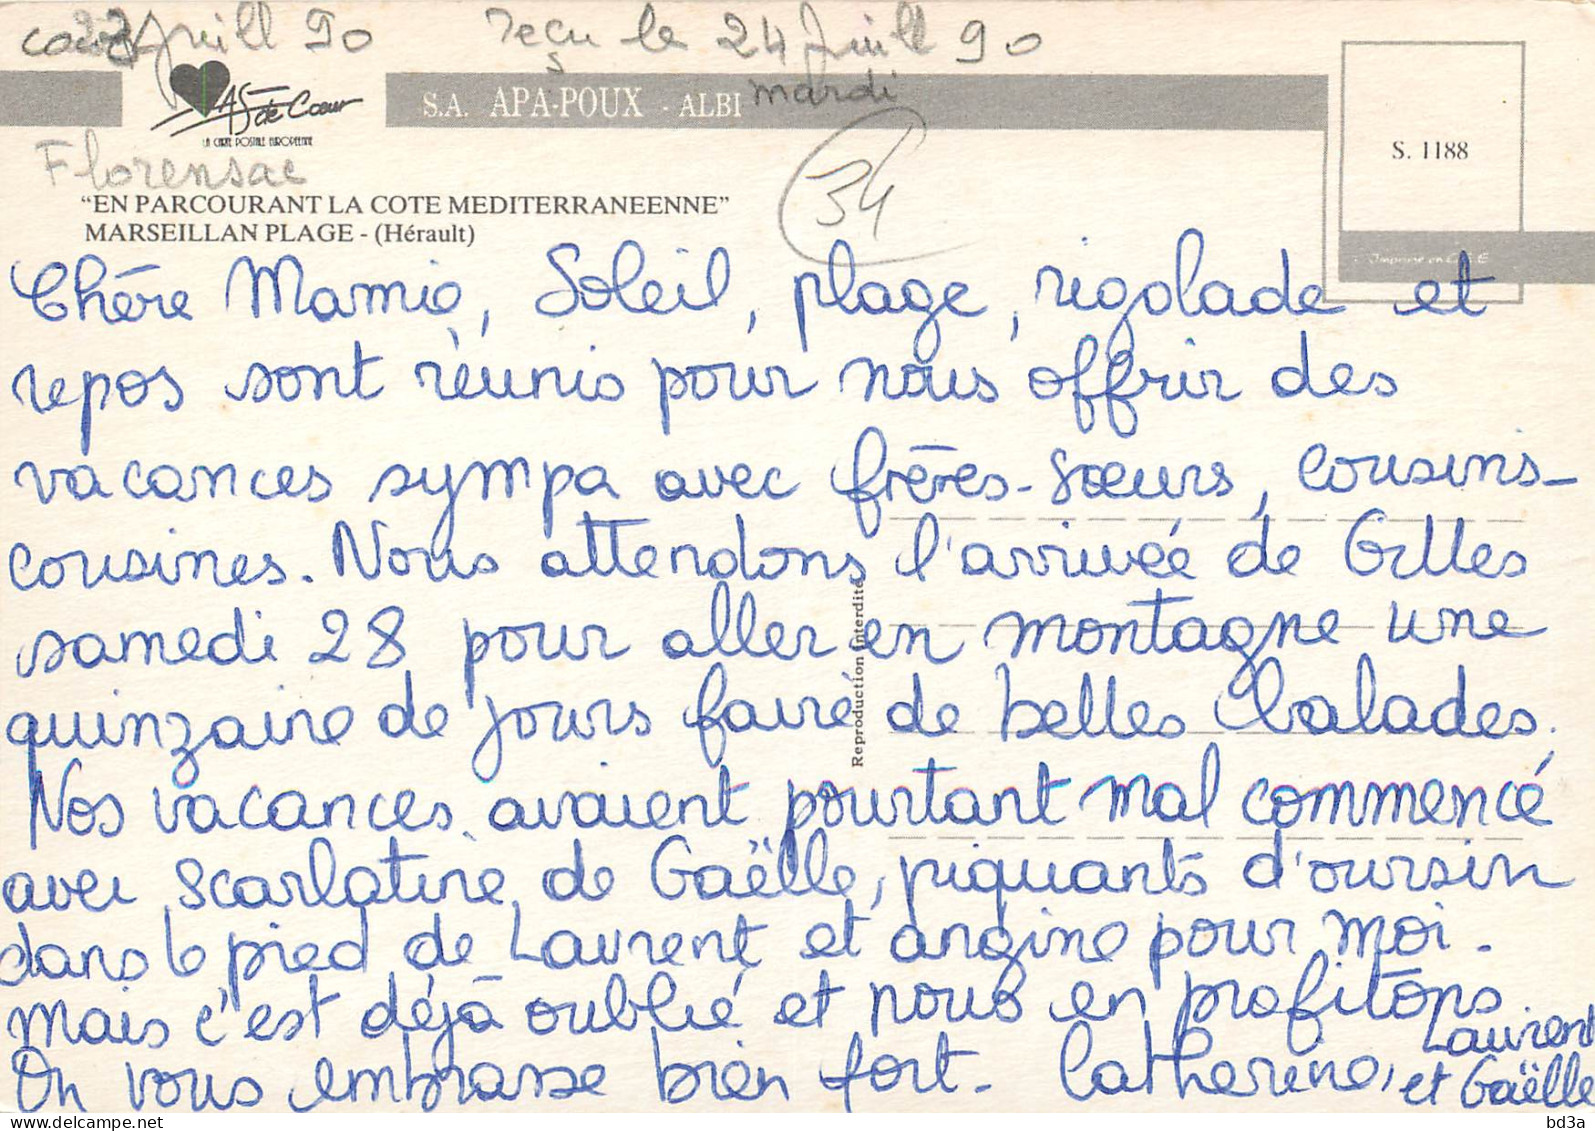 23 Juill 90 reçu le 24 Juill 90
mardi
As de Coeur
LA CARTE POSTALE EUROPEENNE
S.A. APA-POUX - ALBI
S. 1188
Imprimé en C.E.E
Florensac
34
“EN PARCOURANT LA COTE MEDITERRANEENNE”
MARSEILLAN PLAGE - (Hérault)
Chère Mamie, Soleil, plage, rigolade et
repos sont réunis pour nous offrir des
vacances sympa avec frères-sœurs, cousins-
cousines. Nous attendons l'arrivée de Gilles
samedi 28 pour aller en montagne une
quinzaine de jours faire de belles balades.
Nos vacances avaient pourtant mal commencé
avec scarlatine de Gaëlle, piquants d'oursin
dans le pied de Laurent et angine pour moi.
mais c'est déjà oublié et nous en profitons
On vous embrasse bien fort. Catherine, Laurent
et Gaëlle
Reproduction interdite
bd3a